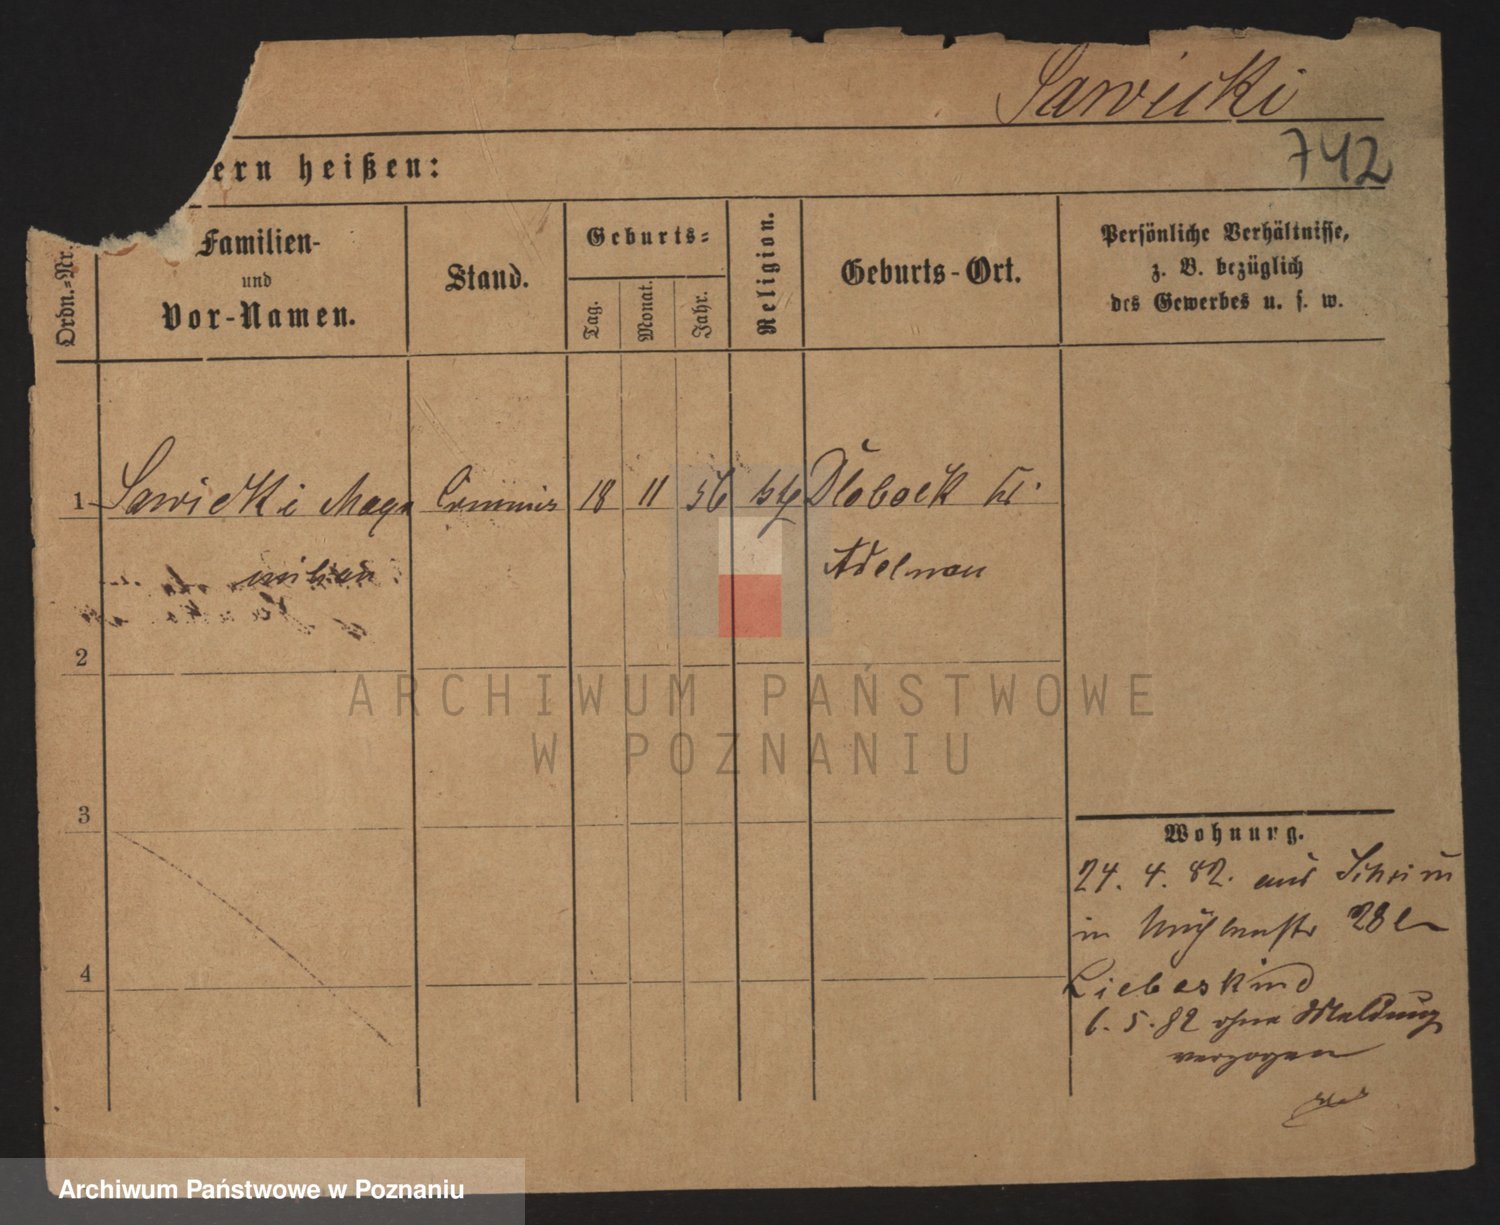 Sawicki
742
ern heißen:
Ordn.-Nr.
Familien-
und
Vor-Namen.
Stand.
Geburts-
Tag.
Monat.
Jahr.
Religion.
Geburts-Ort.
Persönliche Verhältnisse,
z. B. bezüglich
des Gewerbes u. s. w.
1 Sawicki Maxi Commis 18 11 56
milian Adelnau
2
3
4
Wohnung.
24. 4. 82. aus Schrim
in Mühlenstr 28
Liebeskind
6. 5. 82 ohne Meldung
verzogen
ARCHIWUM PAŃSTWOWE
W POZNANIU
Archiwum Państwowe w Poznaniu